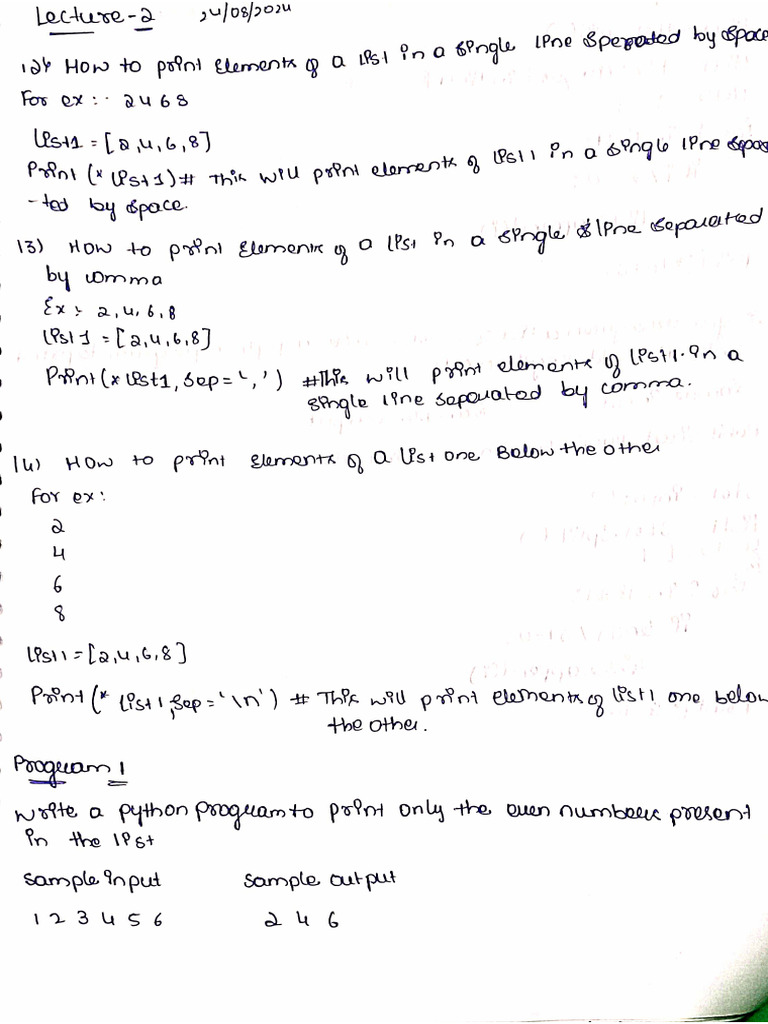 Lecture-2 24/08/2024
12) How to print elements of a list in a single line seperated by space
For ex:- 2 4 6 8
list1 = [2,4,6,8]
Print (* list1) # This will print elements of list1 in a single line sepa
-ted by space.
13) How to print elements of a list in a single line separated
by comma
Ex:- 2,4,6,8
list1 = [2,4,6,8]
Print(*list1, sep=',') #This will print elements of list1 in a
single line separated by comma.
14) How to print elements of a list one Below the other
For ex:
2
4
6
8
list1 = [2,4,6,8]
Print(* list1, sep='\n') # This will print elements of list1 one below
the other.
Program 1
Write a python program to print only the even numbers present
in the list
Sample input Sample output
1 2 3 4 5 6 2 4 6